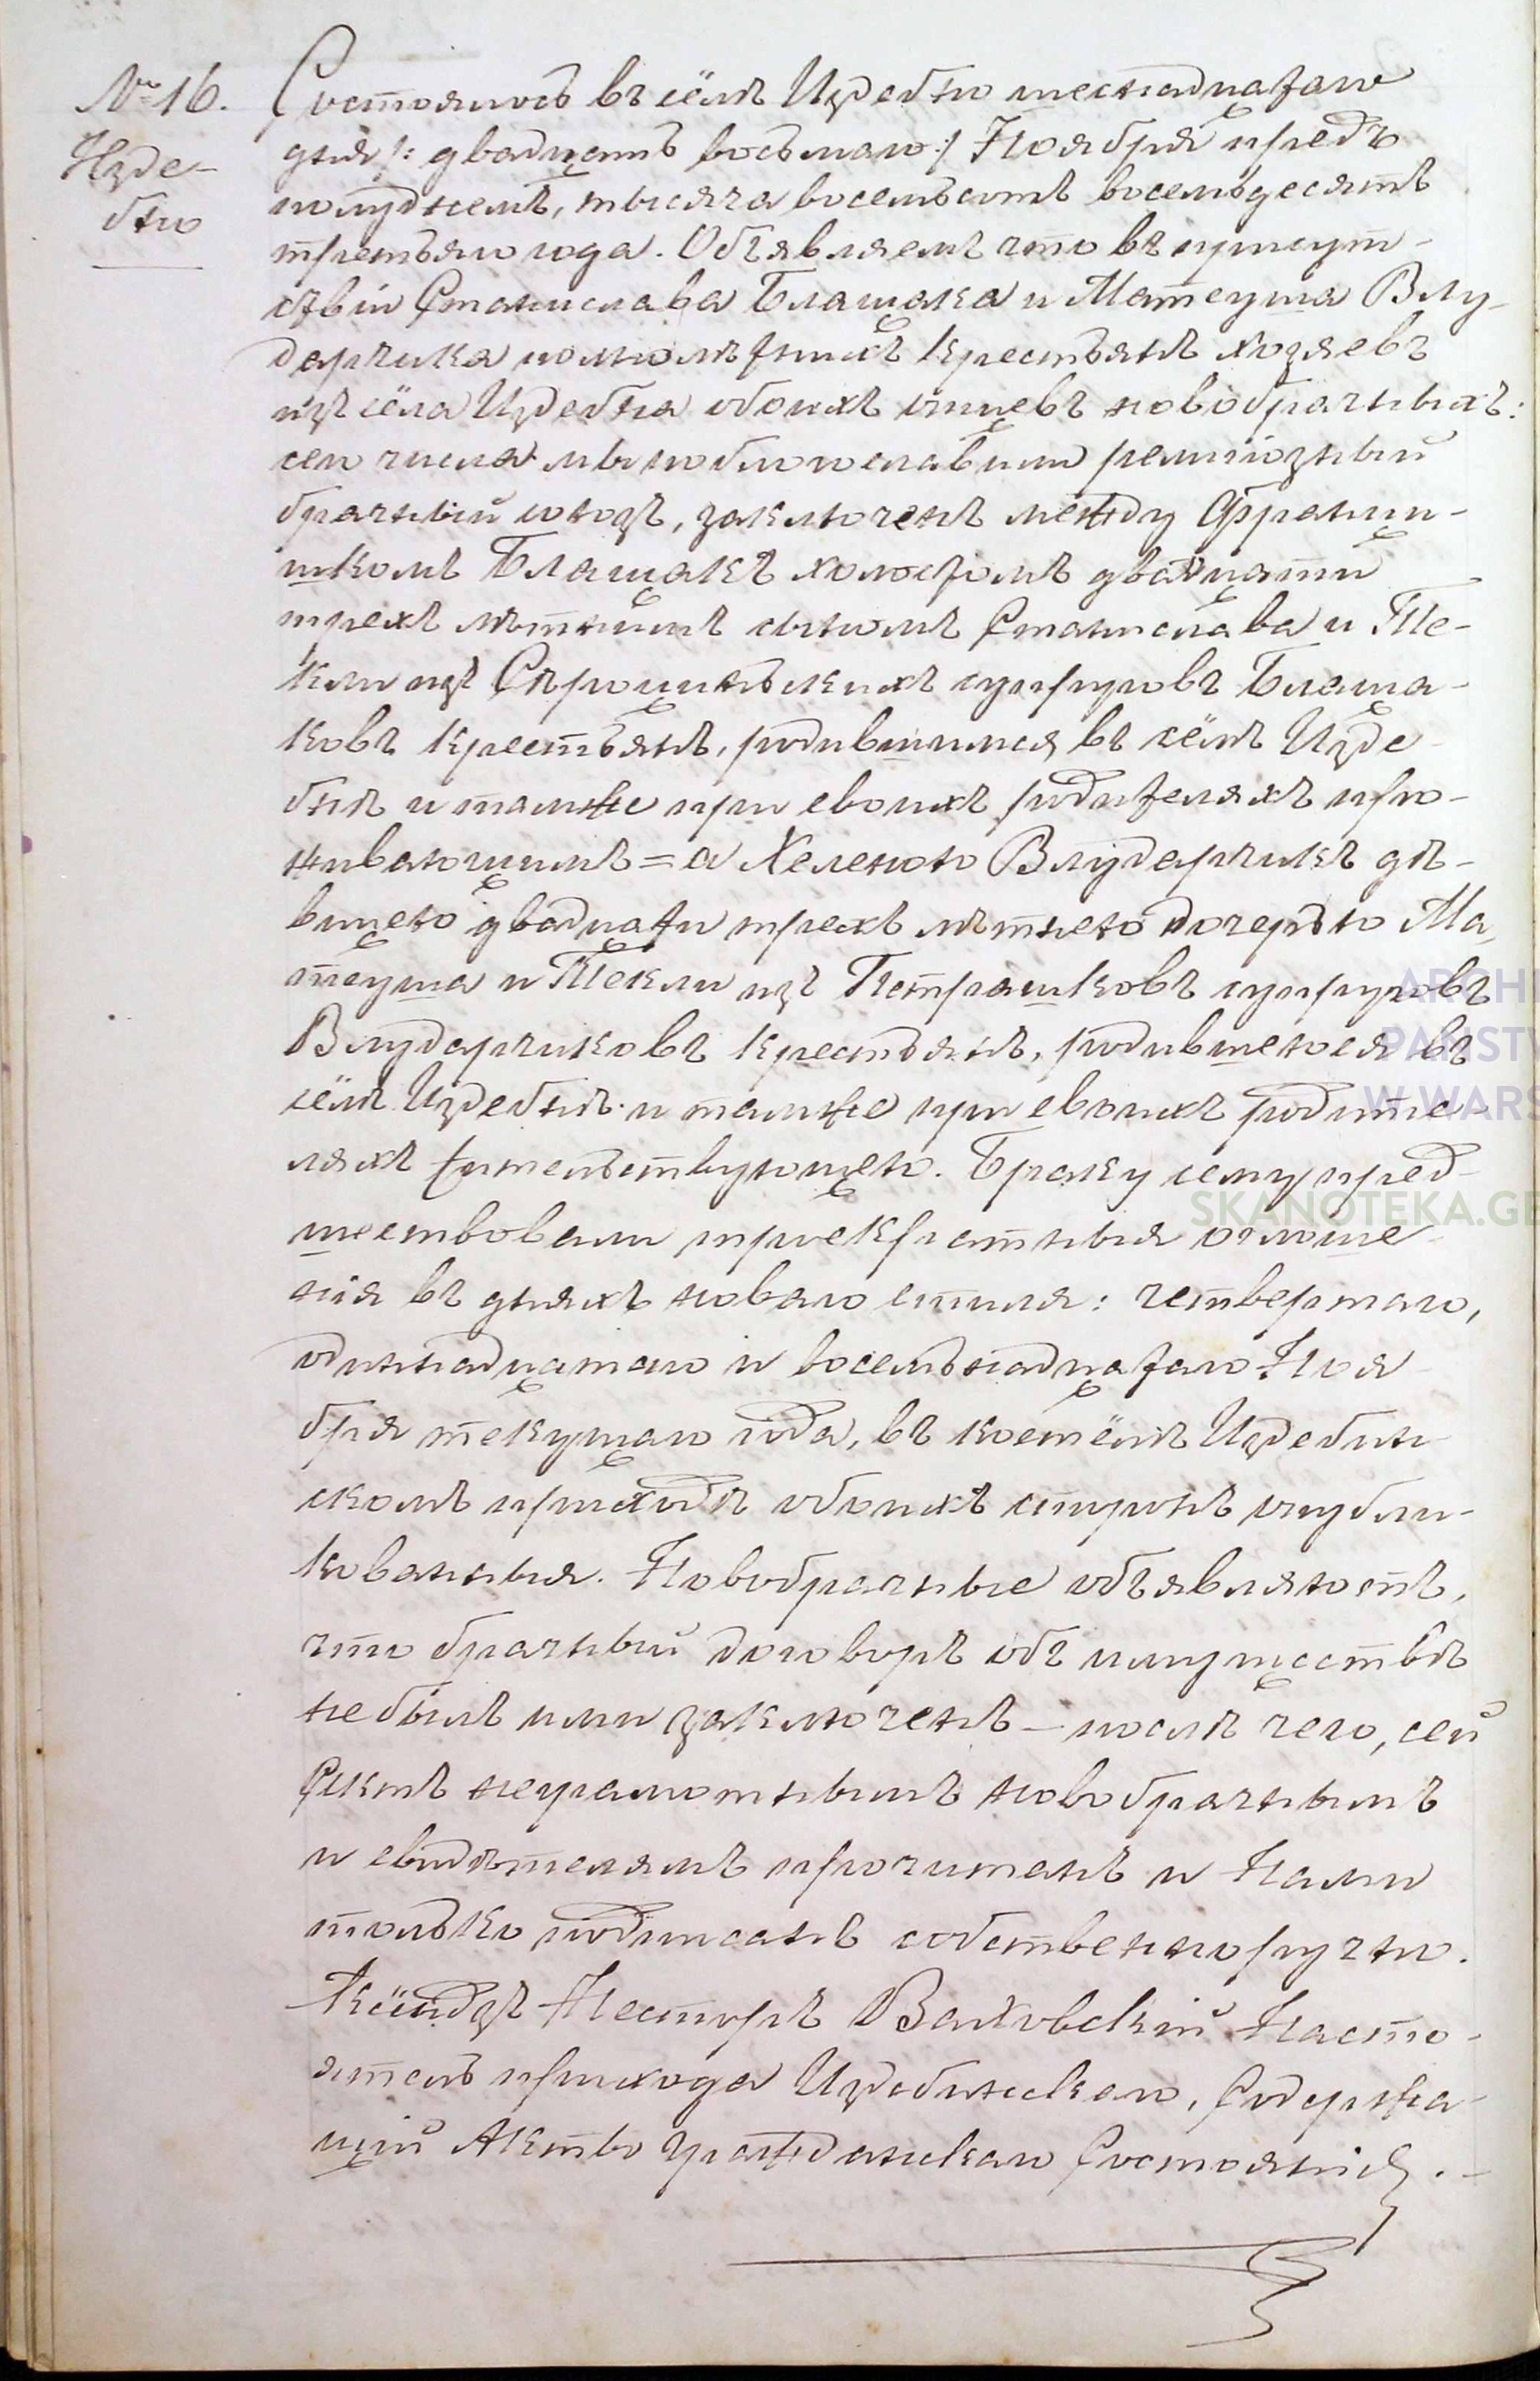 № 16.
Изде-
бно
Состоялось въ сёлѣ Издебно шеснадцатаго
дня /: двадцать восьмаго :/ Ноября предъ
полуднемъ, тысяча восемьсотъ восемьдесятъ
третьяго года. Объявляемъ что въ присут-
ствіи Станислава Блащака и Матеуша Влу-
дарчика полнолѣтнихъ крестьянъ хозяевъ
изъ сёла Издебна обоихъ отцевъ новобрачныхъ:
сего числа мы поблогославили религіозный
брачный союзъ, заключенъ между Францы-
шкомъ Блащакъ холостомъ двадцати
трехъ лѣтнимъ сыномъ Станислава и Те-
кли изъ Сѣроцинскихъ супруговъ Блаща-
ковъ крестьянъ, родившимся въ сёлѣ Изде-
бнѣ и тамже при своихъ родителяхъ про-
живающимъ = а Хеленою Влударчикъ дѣ-
вицею двадцати трехъ лѣтнею дочерью Ма-
теуша и Текли изъ Петрашковъ супруговъ
Влударчиковъ крестьянъ, родившеюся въ
сёлѣ Издебнѣ и тамже при своихъ родите-
ляхъ жительствующею. Браку сему пред-
шествовали троекратныя оглоше-
нія въ дняхъ новаго стиля: четвертаго,
одиннадцатаго и восемьнадцатаго Ноя-
бря текущаго года, въ костёлѣ Издебин-
скомъ приходѣ обоихъ сторонъ опубли-
кованныя. Новобрачные объявляютъ,
что брачный договоръ объ имуществѣ
небылъ ими заключенъ — послѣ чего, сей
Актъ неграмотнымъ новобрачнымъ
и свидѣтелямъ прочитанъ и Нами
только подписанъ собственноручно.
Ксёндзъ Несторъ Валховскій Насто-
ятель прихода Издебинскаго, Содержа-
щій Актъ Гражданскаго Состоянія.
ARCH
PAŃSTW
W WARS
SKANOTEKA.GE